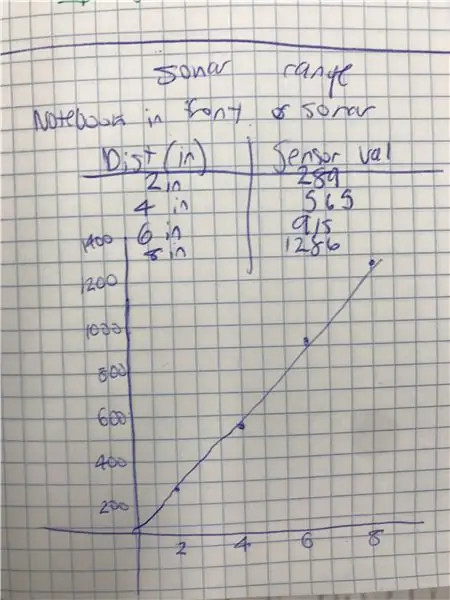 Sonar range
Notebook in front of sonar
Dist (in) Sensor val
2in 289
4 in 565
6 in 915
8 in 1286
1400
1200
1000
800
600
400
200
2 4 6 8